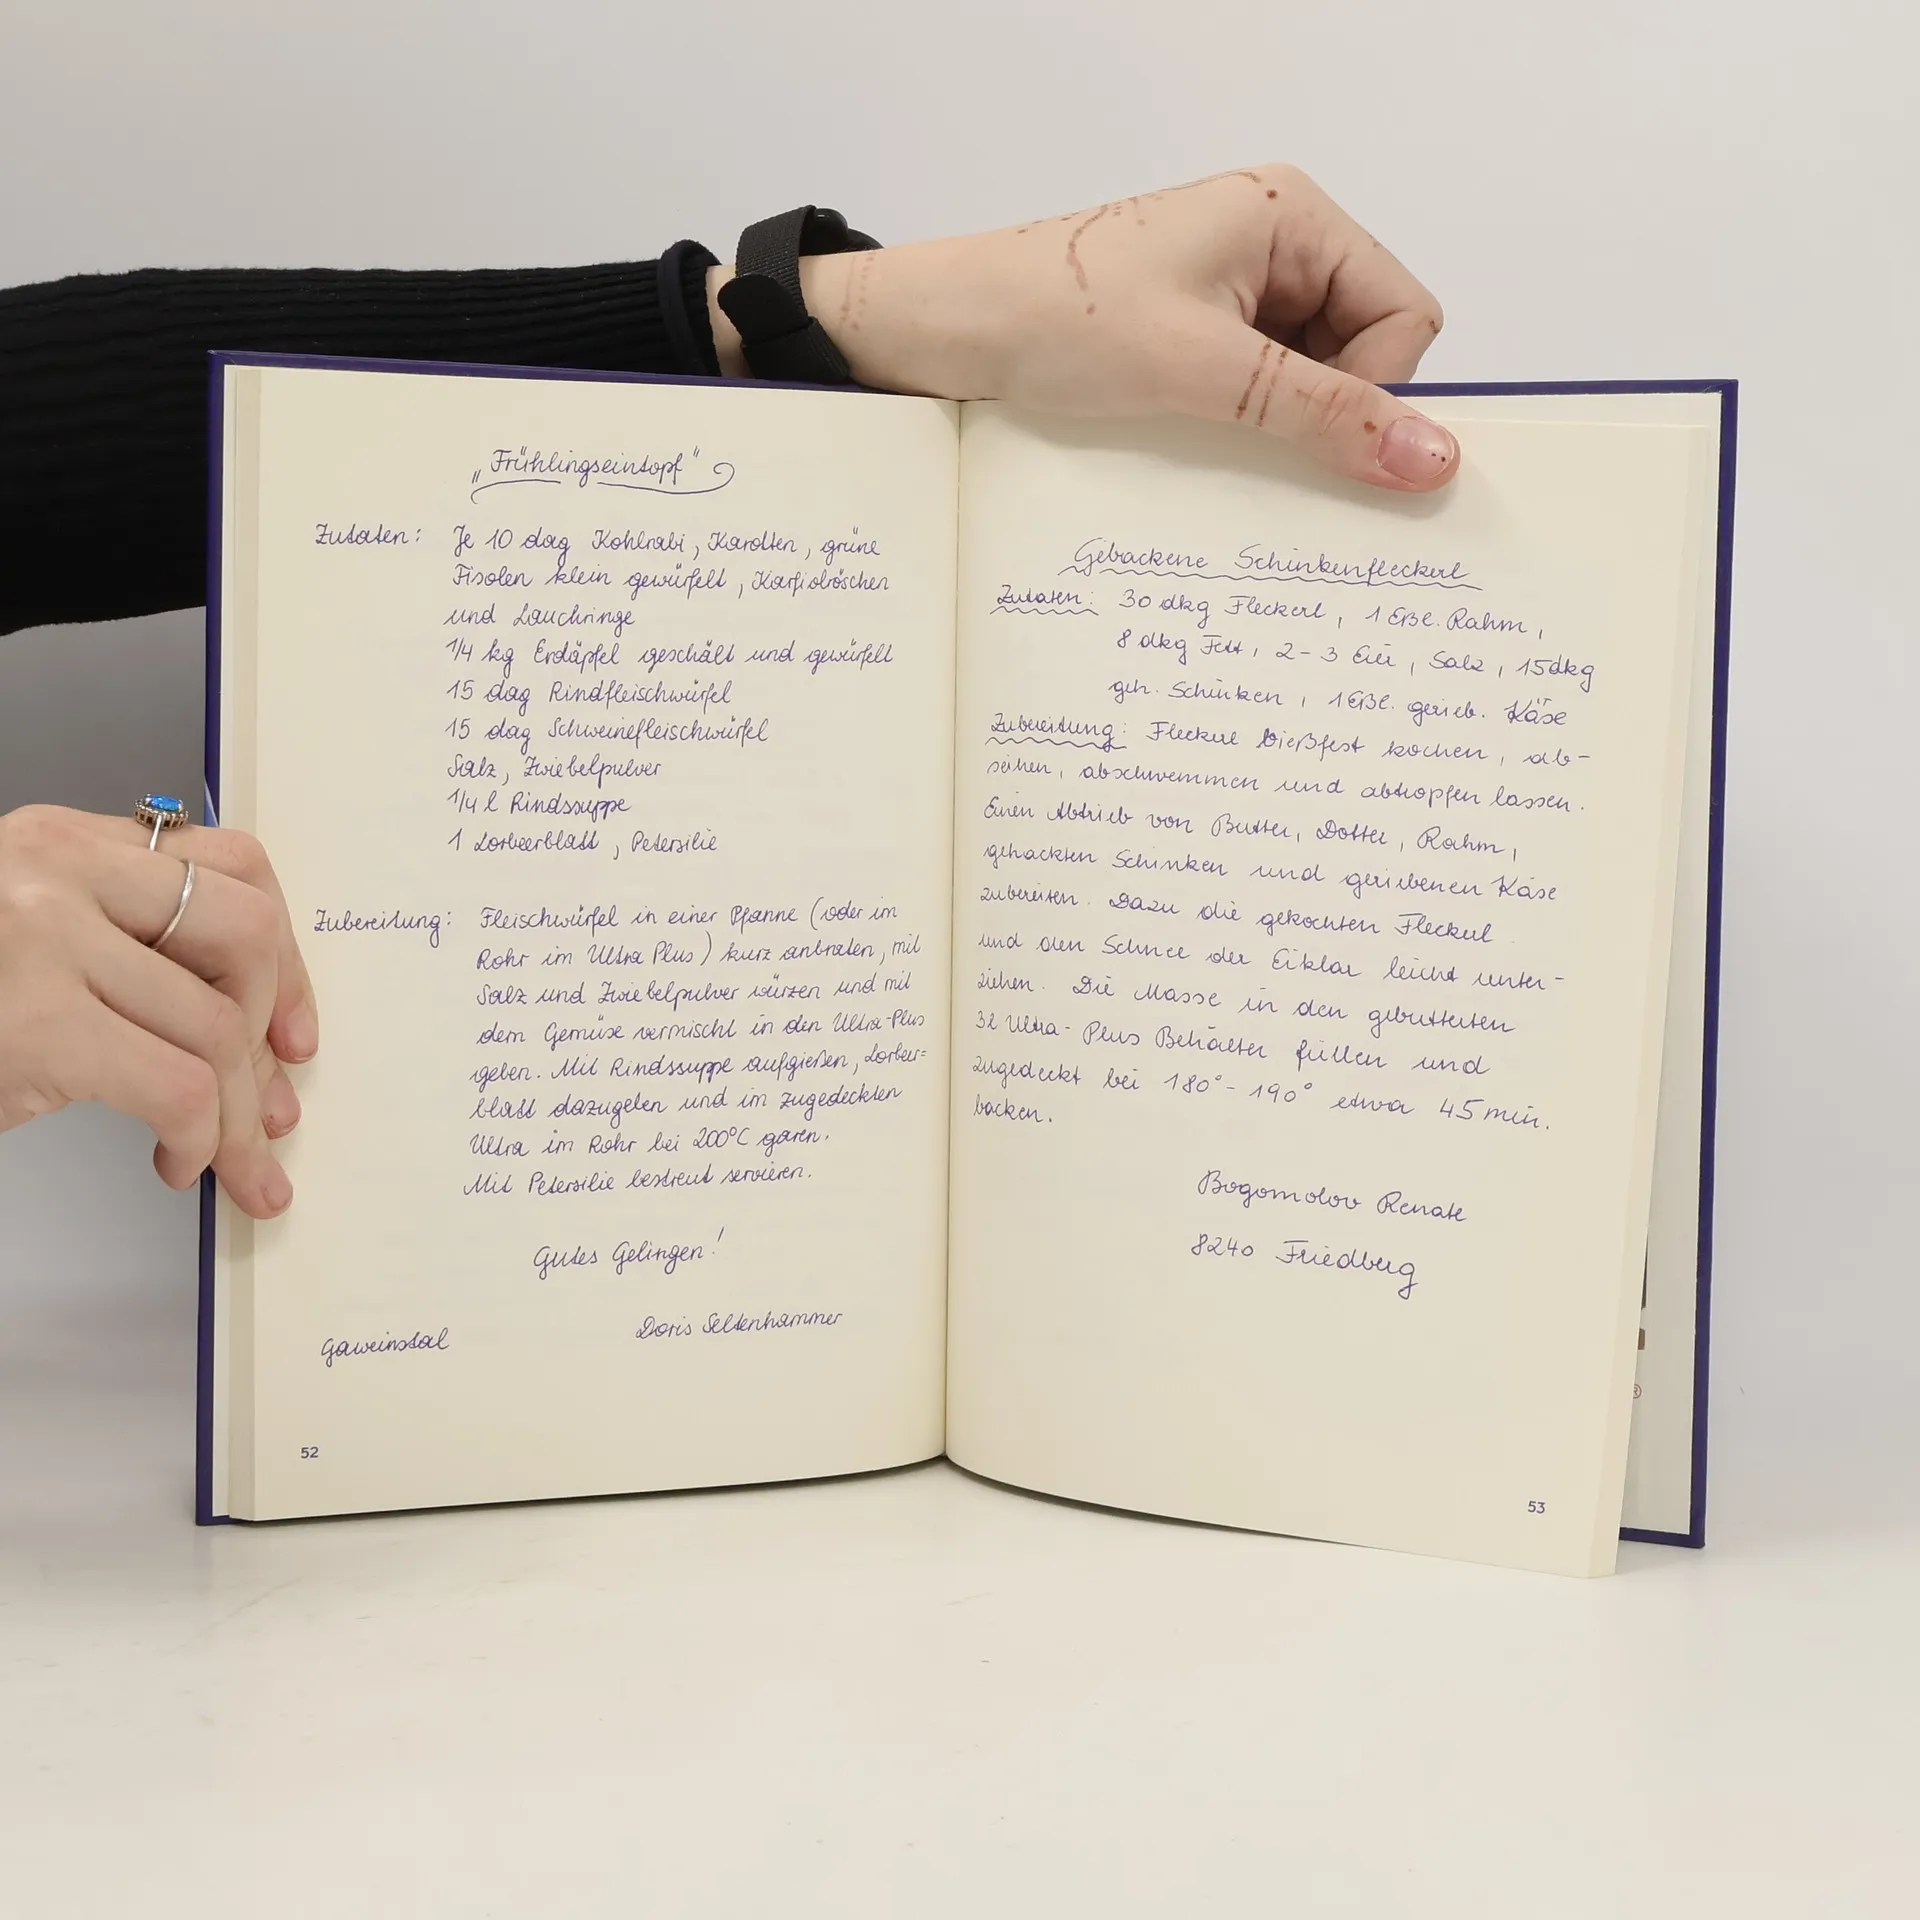 „Frühlingseintopf"
Zutaten: Je 10 dag Kohlrabi, Karotten, grüne
Fisolen klein gewürfelt, Karfiolröschen
und Lauchringe
1/4 kg Erdäpfel geschält und gewürfelt
15 dag Rindfleischwürfel
15 dag Schweinefleischwürfel
Salz, Zwiebelpulver
1/4 l Rindssuppe
1 Lorbeerblatt, Petersilie
Zubereitung: Fleischwürfel in einer Pfanne (oder im
Rohr im Ultra Plus) kurz anbraten, mit
Salz und Zwiebelpulver würzen und mit
dem Gemüse vermischt in den Ultra-Plus
geben. Mit Rindssuppe aufgießen, Lorbeer=
blatt dazugeben und im zugedeckten
Ultra im Rohr bei 200°C garen.
Mit Petersilie bestreut servieren.
Gutes Gelingen!
Doris Seltenhammer
Gaweinstal
52
Gebackene Schinkenfleckerl
Zutaten: 30 dkg Fleckerl, 1 Eßl. Rahm,
8 dkg Fett, 2-3 Eier, Salz, 15 dkg
geh. Schinken, 1 Eßl. gerieb. Käse
Zubereitung: Fleckerl bießfest kochen, ab-
seihen, abschwemmen und abtropfen lassen.
Einen Abtrieb von Butter, Dotter, Rahm,
gehackten Schinken und geriebenen Käse
zubereiten. Dazu die gekochten Fleckerl
und den Schnee der Eiklar leicht unter-
ziehen. Die Masse in den gebutterten
3l Ultra-Plus Behälter füllen und
zugedeckt bei 180°-190° etwa 45 min.
backen.
Bogomolov Renate
8240 Friedberg
53
®